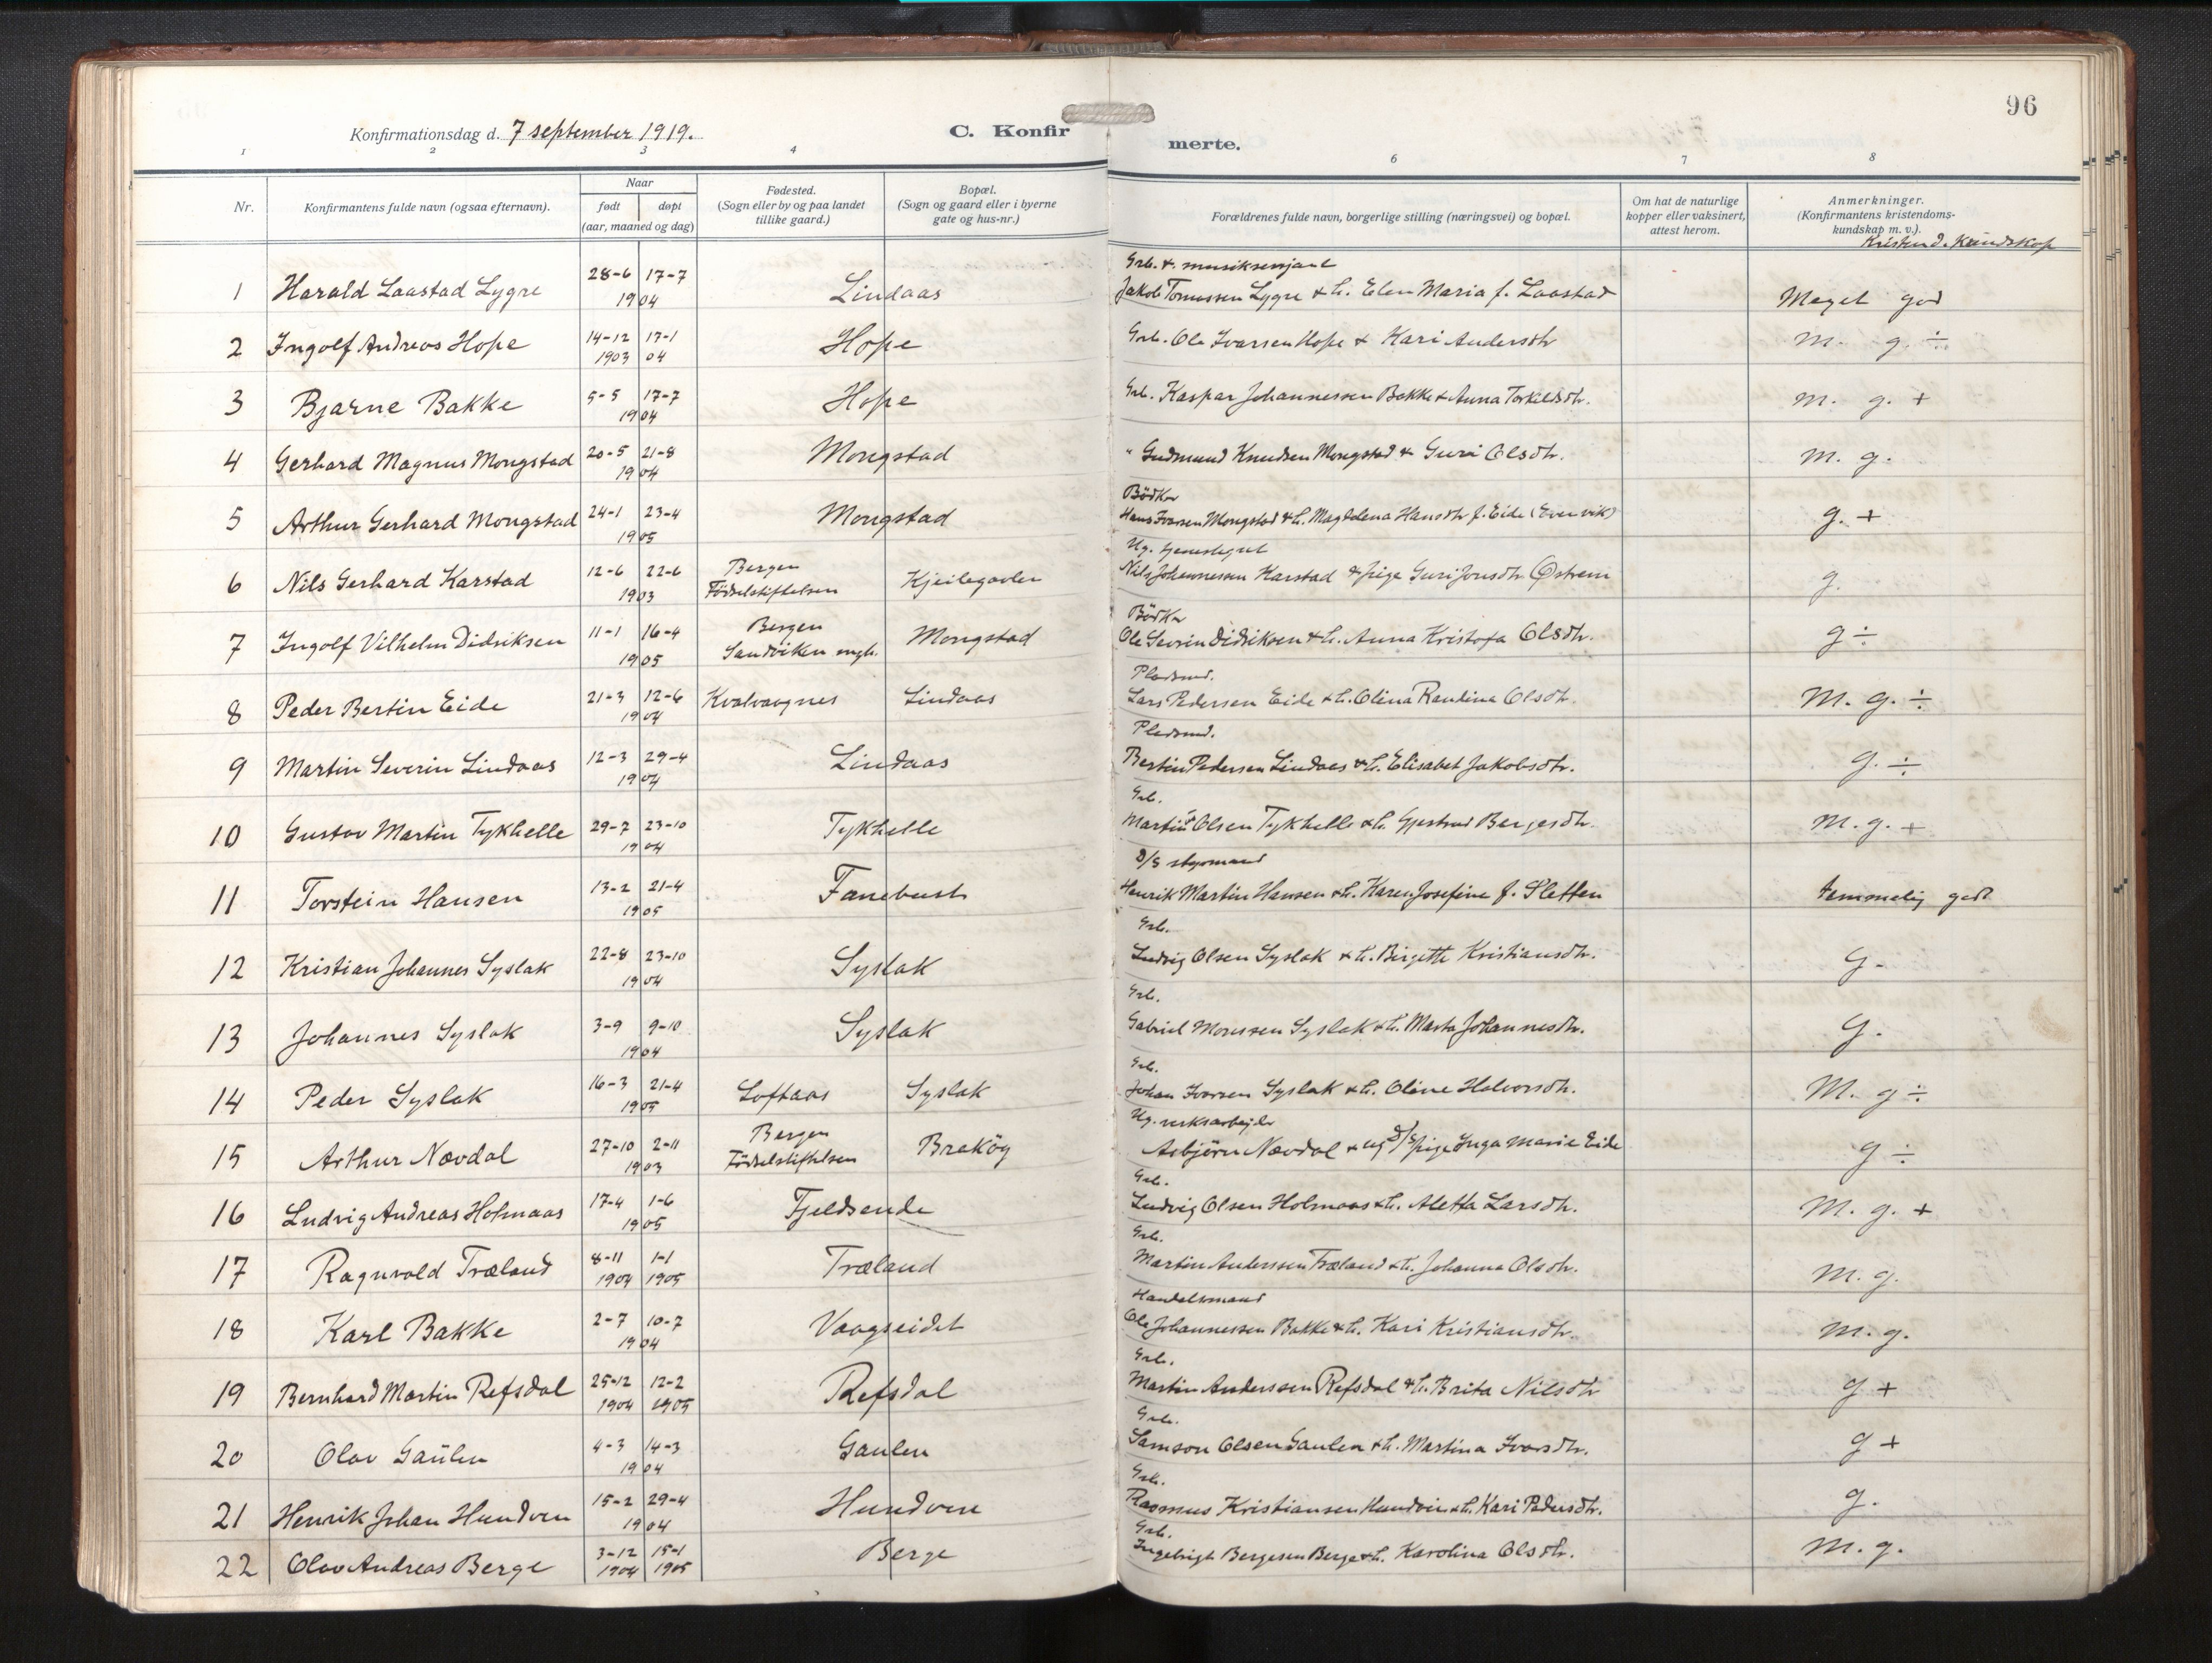 96
Konfirmationsdag d. 7 september 1919.
C. Konfirmerte.
1 2 3 4 6 7 8
Nr.
Konfirmantens fulde navn (ogsaa efternavn).
Naar født døpt (aar, maaned og dag)
Fødested. (Sogn eller by og paa landet tillike gaard.)
Bopæl. (Sogn og gaard eller i byerne gate og hus-nr.)
Forældrenes fulde navn, borgerlige stilling (næringsvei) og bopæl.
Om hat de naturlige kopper eller vaksinert, attest herom.
Anmerkninger. (Konfirmantens kristendomskundskap m. v.).
Kristend. Kundskap
1 Harald Laastad Lygre 28-6 17-7 1904 Lindaas Grb. & Jakob Lygre & h. Elen Maria f. Laastad Meget god
2 Ingolf Andreas Hope 14-12 1903 17-1 04 Hope Grb. Ole Ivarsen Hope & Kari Andersdtr m. g. ÷
3 Bjarne Bakke 5-5 17-7 1904 Hope Grb. Kaspar Johannessen Bakke & Anna Torkildsdtr. m. g. +
4 Gerhard Magnus Mongstad 20-5 21-8 1904 Mongstad " Gudmund Knudsen Mongstad & Guri Olsdtr. m. g.
5 Arthur Gerhard Mongstad 24-1 23-4 1905 Mongstad Bödker Hans Ivarsen Mongstad & h. Magdalena Hansdtr f. Eide (Evenvik) g. +
6 Nils Gerhard Karstad 12-6 22-6 1903 Bergen Födselstiftelsen Kjeilegavlen Ug. Nils Johannessen Karstad & pige Guri Jonsdtr Østrem g.
7 Ingolf Vilhelm Didriksen 11-1 16-4 1905 Bergen Sandviken mgh. Mongstad Bödker Ole Severin Didriksen & h. Anna Kristofa Olsdtr. g ÷
8 Peder Bertin Eide 21-3 12-6 1904 Kvalvaagnes Lindaas Pladsmd. Lars Pedersen Eide & h. Olina Randina Olsdtr. M. g. ÷
9 Martin Severin Lindaas 12-3 29-4 1904 Lindaas Pladsmd. Bertin Pedersen Lindaas & h. Elisabet Jakobsdtr. g. ÷
10 Gustav Martin Tykhelle 29-7 23-10 1904 Tykhelle Grb. Martin Olsen Tykhelle & h. Gjertrud Bergesdtr. M. g. +
11 Torstein Hansen 13-2 21-4 1905 Fanebust D/S styrmand Henrik Martin Hansen & h. Karen Josefine f. Sletten temmelig godt
12 Kristian Johannes Syslak 22-8 23-10 1904 Syslak Grb. Ludvig Olsen Syslak & h. Birgitte Kristiansdtr. G.
13 Johannes Syslak 3-9 9-10 1904 Syslak Grb. Gabriel Monssen Syslak & h. Marta Johannesdtr. G.
14 Peder Syslak 16-3 21-4 1905 Loftaas Syslak Grb. Johan Ivarsen Syslak & h. Oline Halvorsdtr. M. g ÷
15 Arthur Nævdal 27-10 2-11 1903 Bergen Födselstiftelsen Braköy Ug. verksarbejder Asbjörn Nævdal & ug pige Inga Marie Eide g ÷
16 Ludvig Andreas Holmaas 17-4 1-6 1905 Fjeldsende Grb. Ludvig Olsen Holmaas & h. Aletta Larsdtr. M. g. +
17 Ragnvald Træland 8-11 1904 1-1 1905 Træland Grb. Martin Anderssen Træland & h. Johanna Olsdtr. m. g.
18 Karl Bakke 2-7 10-7 1904 Vaagseidet Handelsmand Ole Johannessen Bakke & h. Kari Kristiansdtr. m. g.
19 Bernhard Martin Refsdal 25-12 1904 12-2 1905 Refsdal Grb. Martin Anderssen Refsdal & h. Brita Nilsdtr g +
20 Olav Gaulen 4-3 14-3 1904 Gaulen Grb. Samson Olsen Gaulen & h. Martina Ivarsdtr. g +
21 Henrik Johan Hundven 15-2 29-4 1904 Hundven Grb. Rasmus Kristiansen Hundven & h. Kari Pedersdtr. g.
22 Olav Andreas Berge 3-12 1904 15-1 1905 Berge Grb. Ingebrigt Bergesen Berge & h. Karolina Olsdtr. M. g.